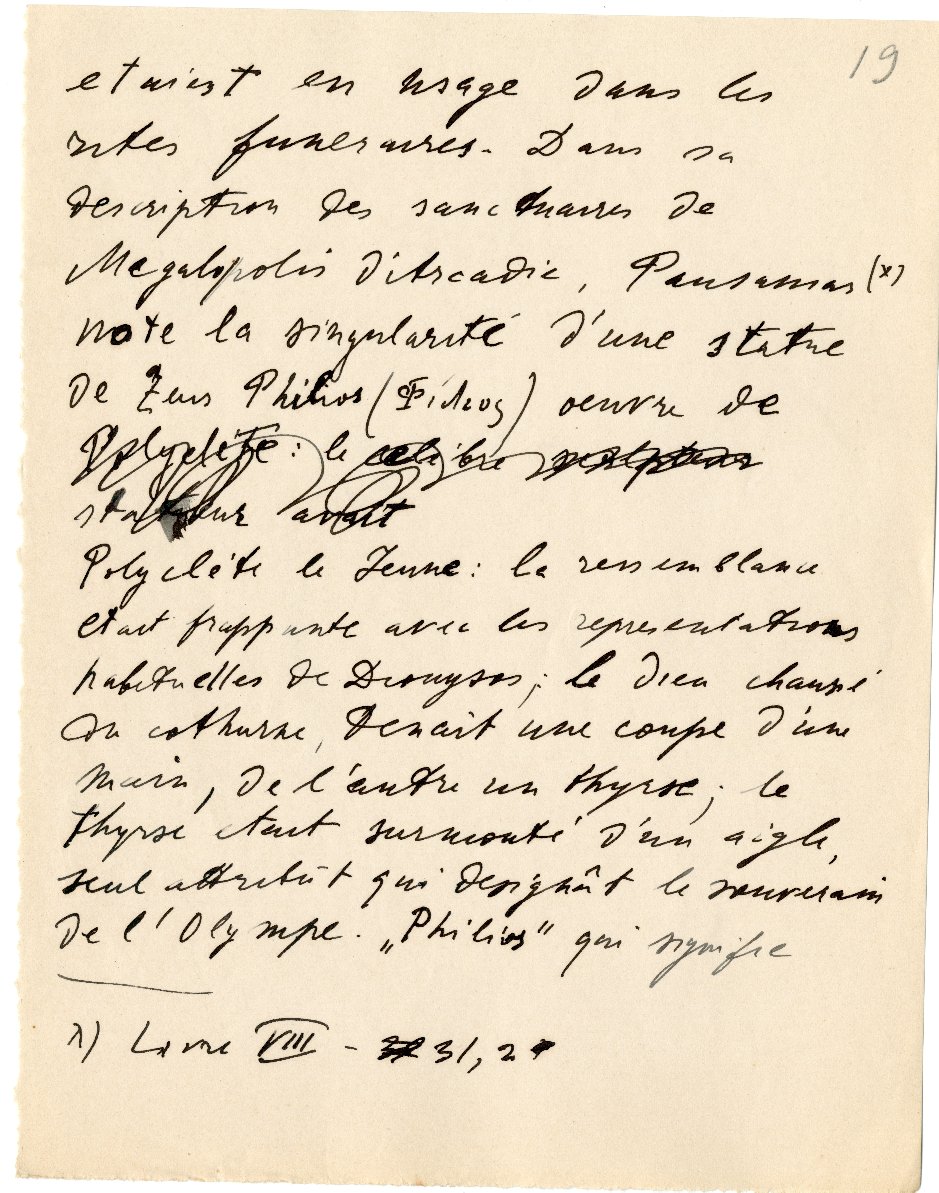 19
etaient en usage dans les
rites funeraires. Dans sa
description des sanctuaires de
Megalopolis d'Arcadie, Pausanias (x)
note la singularité d'une statue
de Zeus Philios (Φίλιος) oeuvre de
Polyclète : le celèbre sculpteur
statueur avait
Polyclète le Jeune : la ressemblance
etait frappante avec les representations
habituelles de Dionysos ; le dieu chaussé
du cothurne, tenait une coupe d'une
main, de l'autre un thyrse ; le
thyrse etait surmonté d'un aigle,
seul attribut qui designât le souverain
de l'Olympe. „Philios" qui signifie
x) Livre VIII - 31, 2